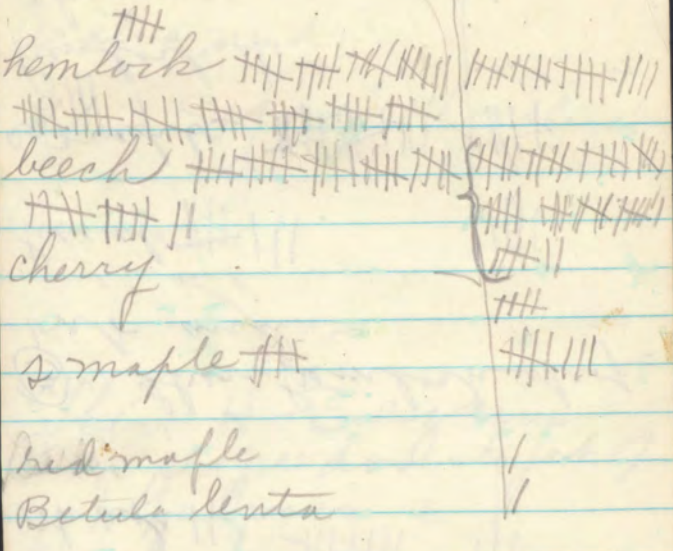 hemlock
beech
cherry
s maple
red maple
Betula lenta